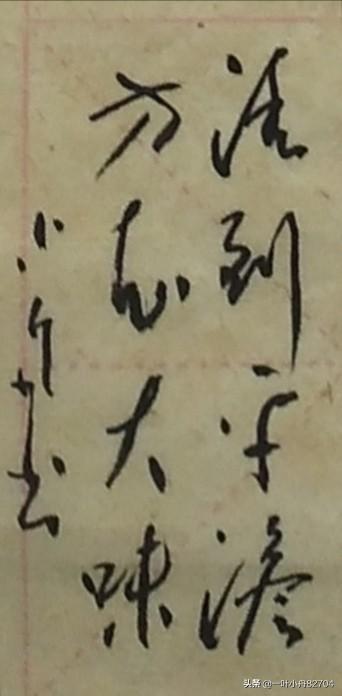 到平澹
方知大味
小舟书
头条 @一叶小舟82704